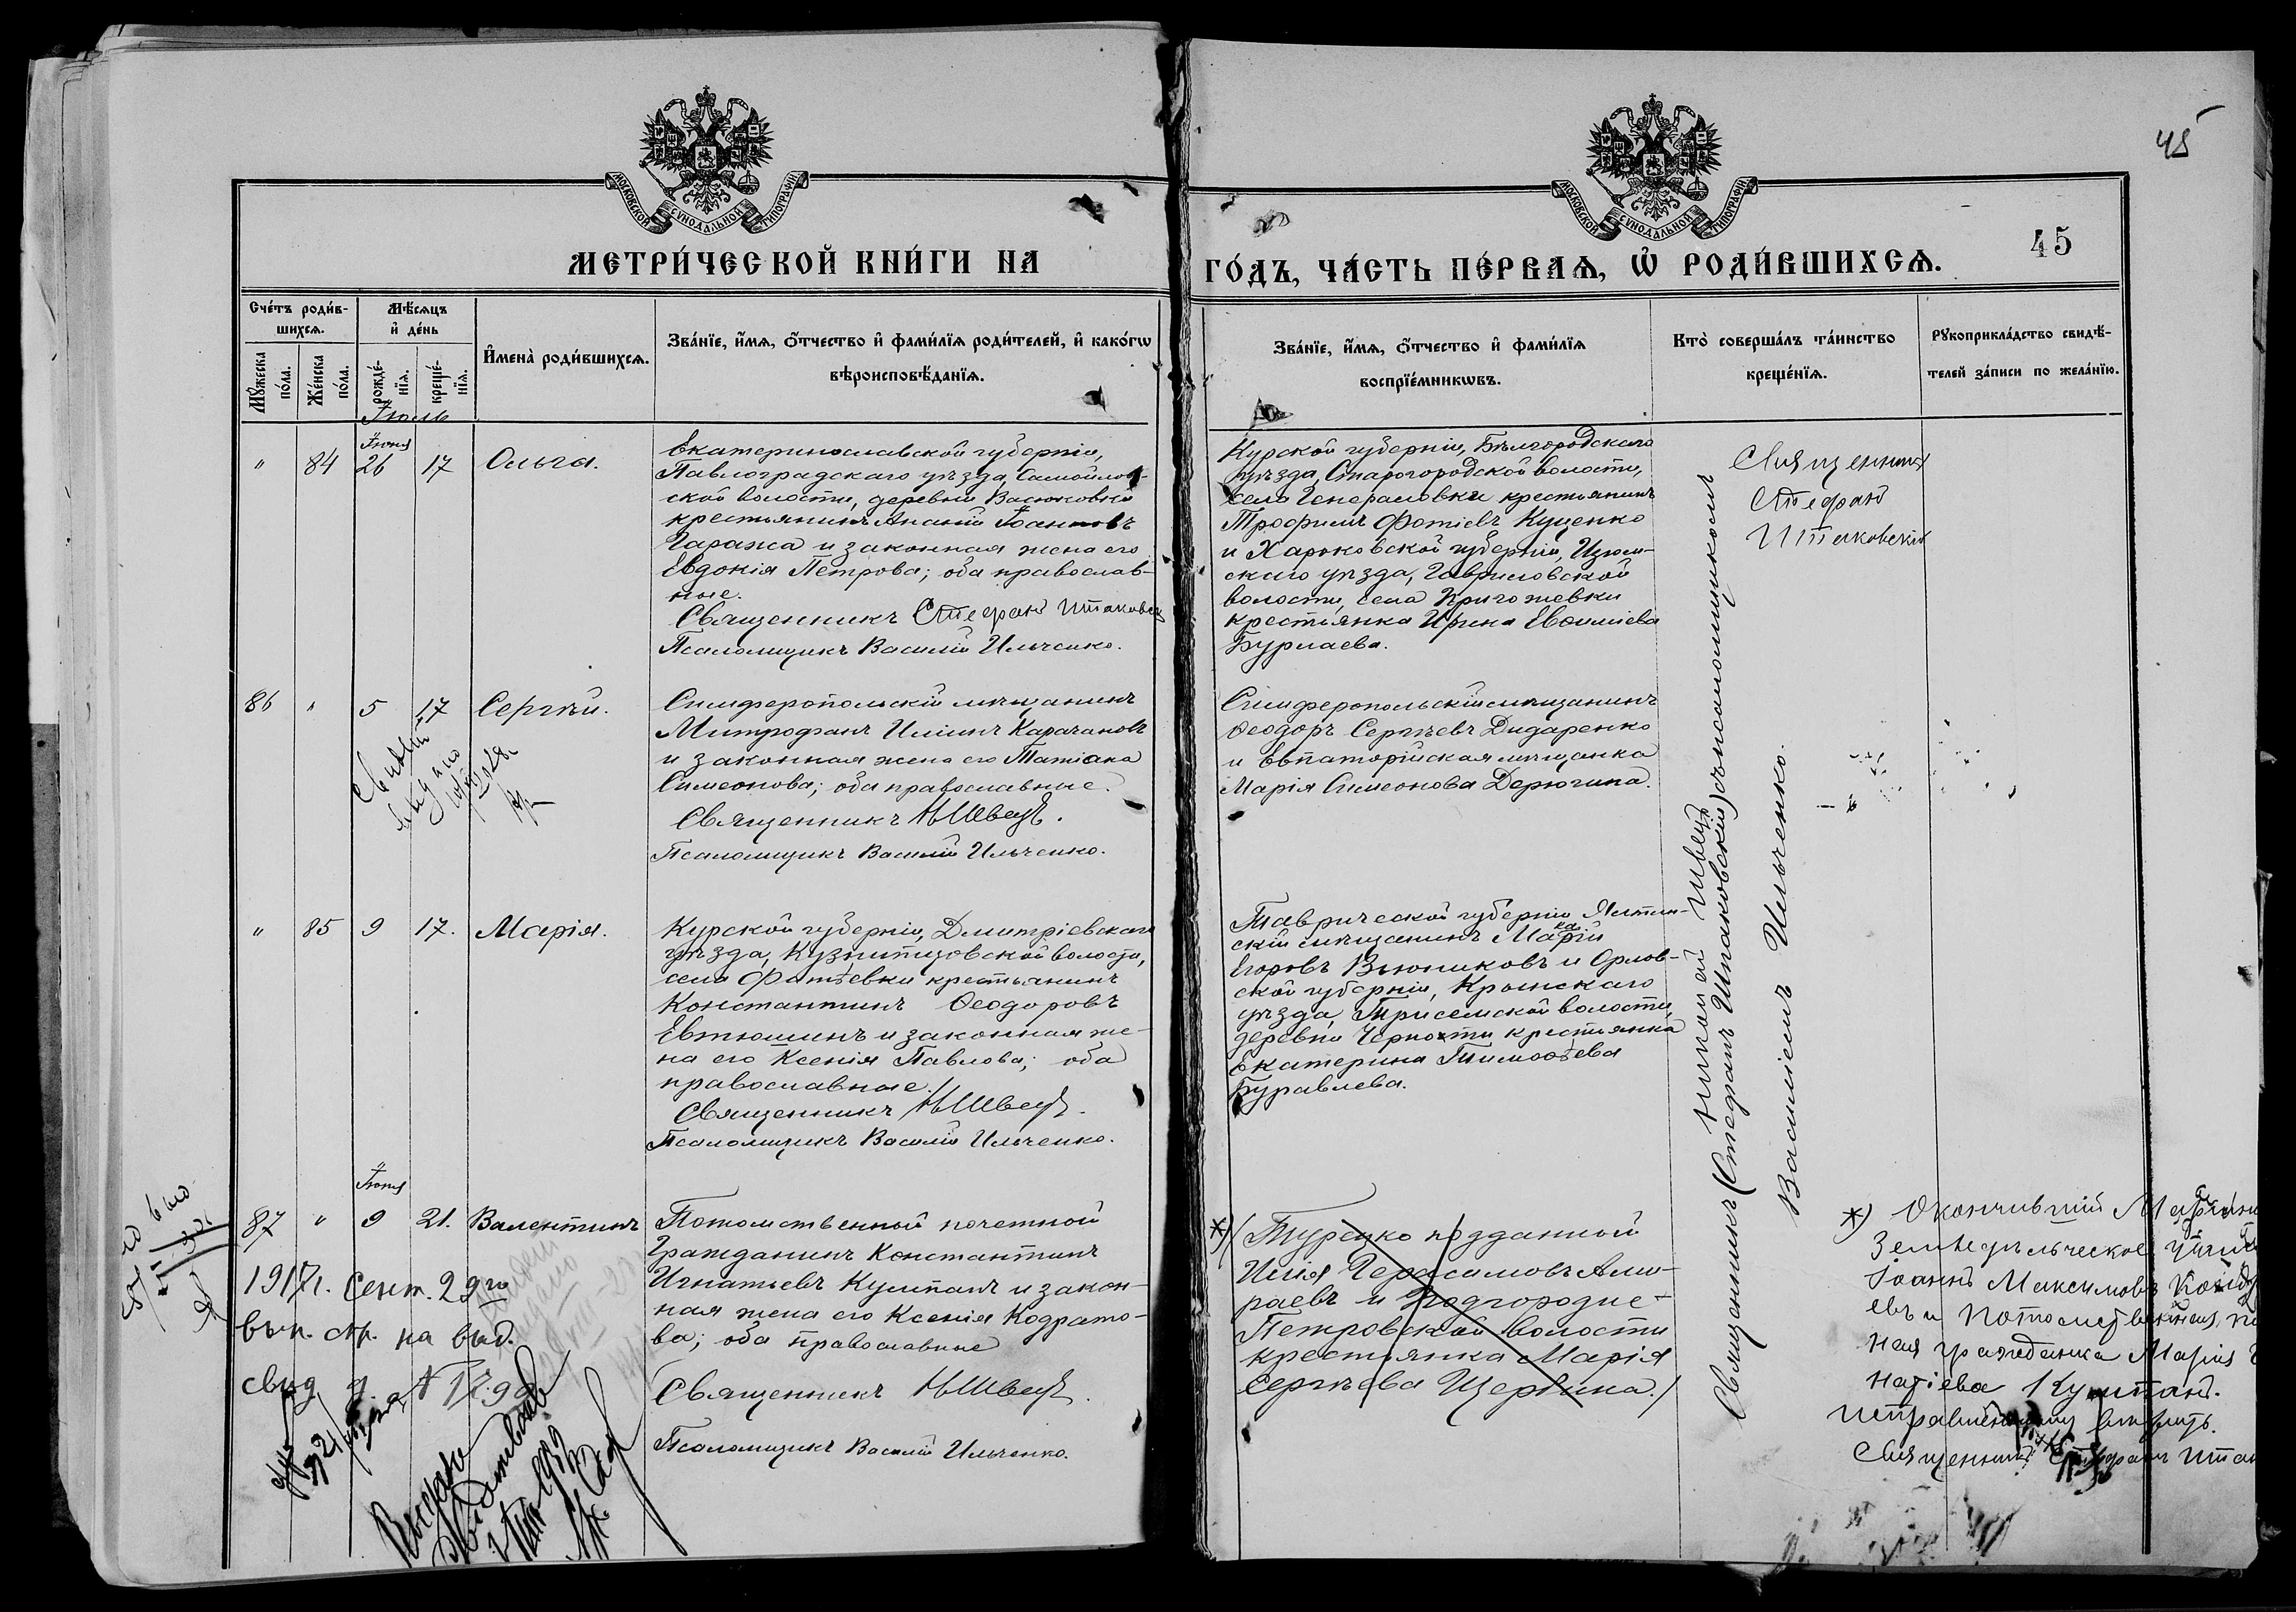 45
МОСКОВСКОЙ СѴНОДАЛЬНОЙ ТИПОГРАФІИ
МОСКОВСКОЙ СѴНОДАЛЬНОЙ ТИПОГРАФІИ
МЕТРИ́ЧЕСКОЙ КНИ́ГИ НА
ГО́ДЪ, ЧА́СТЬ ПЕ́РВАѦ, Ѡ҆ РОДИ́ВШИХСѦ.
45
Сче́тъ роди́в-
шихсѧ.
Мѣ́сѧцъ
и҆ де́нь
Мꙋ́жеска
по́ла.
Же́нска
по́ла.
рожде́-
нїѧ.
креще́-
нїѧ.
И҆мена̀ роди́вшихсѧ.
Зва́нїе, и҆́мѧ, ѻ҆́тчество и҆ фами́лїѧ роди́телей, и҆ како́гѡ
вѣроисповѣ́данїѧ.
Зва́нїе, и҆́мѧ, ѻ҆́тчество и҆ фами́лїѧ
воспрїе́мникѡвъ.
Кто̀ соверша́лъ та́инство
креще́нїѧ.
Рꙋкоприкла́дство свидѣ́-
телей за́писи по жела́нїю.
Іюль
" 84 Іюня 26 17 Ольга.
Екатеринославской губерніи,
Павлоградскаго уѣзда, Самойлов-
ской волости, деревни Васюковой
крестьянинъ Ананій Іоанновъ
Гаража и законная жена его
Евдокія Петрова; оба православ-
ные.
Священникъ Стефанъ
Псаломщикъ Василій Ильченко.
Курской губерніи, Бѣлгородскаго
уѣзда, Старогородской волости,
села Генераловки крестьянинъ
Трофимъ Фотіевъ Куценко
и Харьковской губерніи, Изюм-
скаго уѣзда, Гавриловской
волости, села Пригожевки
крестьянка Ирина Евѳиміева
Бурлаева.
Священникъ
Стефанъ
Штаковскій
86 " 5 17 Сергѣй.
Симферопольскій мѣщанинъ
Митрофанъ Ильинъ Карачановъ
и законная жена его Татіана
Симеонова; оба православные.
Священникъ Н Швецъ.
Псаломщикъ Василій Ильченко.
Симферопольскій мѣщанинъ
Ѳеодоръ Сергѣевъ Дидаренко
и Евпаторійская мѣщанка
Марія Симеонова Дерюгина.
выдано
1928
" 85 9 17. Марія.
Курской губерніи, Дмитріевскаго
уѣзда, волости,
села Фатѣевки крестьянинъ
Константинъ Ѳеодоровъ
Евтюшинъ и законная же-
на его Ксенія Павлова; оба
православные.
Священникъ Н Швецъ.
Псаломщикъ Василій Ильченко.
Таврической губерніи Ялтин-
скій мѣщанинъ
Егоровъ Вьюниковъ и Орлов-
ской губерніи, Кромскаго
уѣзда, волости,
деревни крестьянка
Екатерина Тимоѳеева
Буравлева.
Священникъ Николай Швецъ
(Стефанъ Штаковскій) съ псаломщикомъ
Василіемъ Ильченко.
87 " Іюня 9 21. Валентинъ
Потомственной почетной
Гражданинъ Константинъ
Игнатьевъ Култанъ и закон-
ная жена его Ксенія Кодрато-
ва; оба православные
Священникъ Н Швецъ.
Псаломщикъ Василій Ильченко.
*) (Турецко подданной
Илія Герасимовъ
раевъ и Подгородне-
Петровской волости
крестьянка Марія
Сергѣева Щербина.)
*) Окончившій
Земледѣльческое
Іоаннъ Максимовъ
евъ и потомственная
ная гражданка Марія
натіева Култанъ.
вѣрить.
Священникъ Стефанъ
1917 г. Сент. 29 го
вып. ст. на выд.
свид.